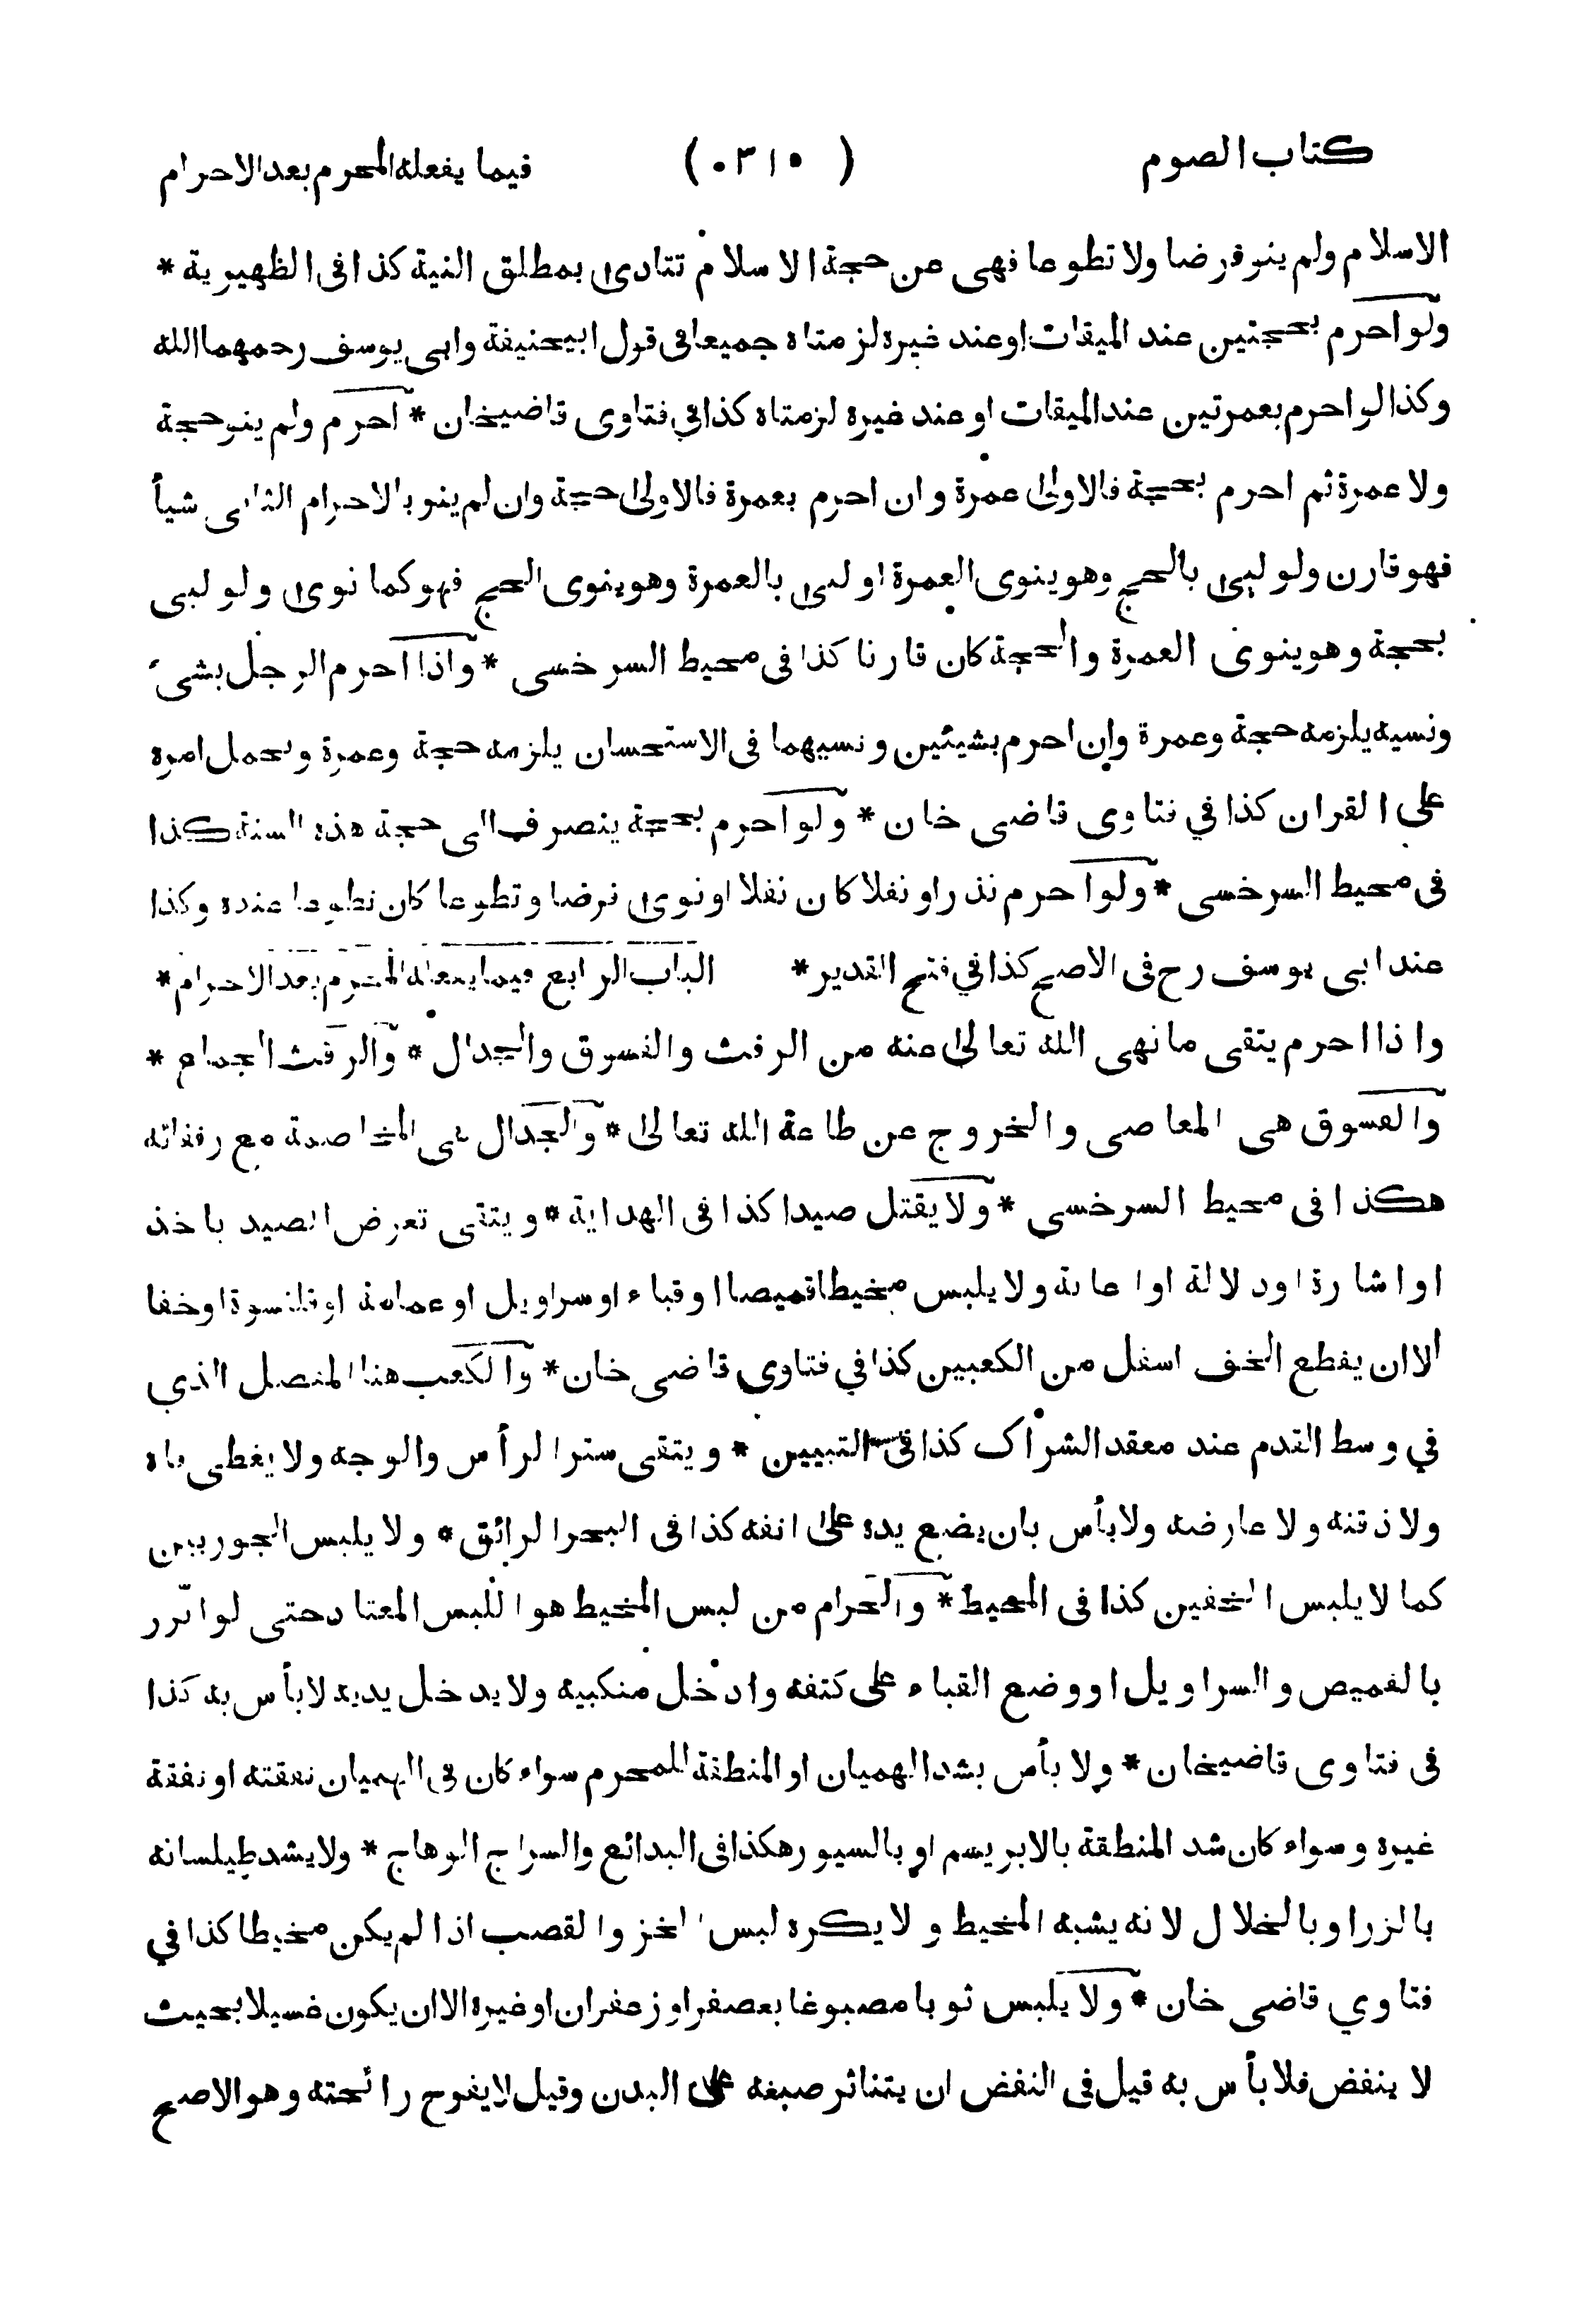 كتاب الصوم ( ٠٣١٠ ) فيما يفعله المحرم بعد الاحرام
الاسلام ولم ينو فرضا ولا تطوعا فهى عن حجة الاسلام تتادى بمطلق النية كذا فى الظهيرية *
ولو احرم بحجتين عند الميقات او عند غيره لزمتاه جميعا فى قول ابيحنيفة وابى يوسف رحمهما الله
وكذا لو احرم بعمرتين عند الميقات او عند غيره لزمتاه كذا في فتاوى قاضيخان * احرم ولم ينو حجة
ولا عمرة ثم احرم بحجة فالاولى عمرة وان احرم بعمرة فالاولى حجة وان لم ينو بالاحرام الثانى شيأ
فهو قارن ولو لبى بالحج وهو ينوى العمرة او لبى بالعمرة وهو ينوى الحج فهو كما نوى ولو لبى
بحجة وهو ينوى العمرة والحجة كان قارنا كذا فى محيط السرخسى * واذا احرم الرجل بشىء
ونسيه يلزمه حجة وعمرة وان احرم بشيئين ونسيهما فى الاستحسان يلزمه حجة وعمرة ويحمل امره
على القران كذا في فتاوى قاضى خان * ولو احرم بحجة ينصرف الى حجة هذه السنة كذا
فى محيط السرخسى * ولو احرم نذرا ونفلا كان نفلا او نوى فرضا وتطوعا كان تطوعا عنده وكذا
عند ابى يوسف رح فى الاصح كذا في فتح القدير * الباب الرابع فيما يفعله المحرم بعد الاحرام *
واذا احرم يتقى ما نهى الله تعالى عنه من الرفث والفسوق والجدال * والرفث الجماع *
والفسوق هى المعاصى والخروج عن طاعة الله تعالى * والجدال هى المخاصمة مع رفقائه
هكذا فى محيط السرخسى * ولا يقتل صيدا كذا فى الهداية * ويتقى تعرض الصيد باخذ
او اشارة او دلالة او اعانة ولا يلبس مخيطا قميصا او قباء او سراويل او عمامة او قلنسوة او خفا
الا ان يقطع الخف اسفل من الكعبين كذا في فتاوى قاضى خان * والكعب هنا المفصل الذي
في وسط القدم عند معقد الشراك كذا فى التبيين * ويتقى ستر الرأس والوجه ولا يغطى فاه
ولا ذقنه ولا عارضه ولا بأس بان يضع يده على انفه كذا فى البحر الرائق * ولا يلبس الجوربين
كما لا يلبس الخفين كذا فى المحيط * والحرام من لبس المخيط هو اللبس المعتاد حتى لو اتزر
بالقميص والسراويل او وضع القباء على كتفه وادخل منكبيه ولا يدخل يديه لا بأس به كذا
فى فتاوى قاضيخان * ولا بأس بشد الهميان او المنطقة للمحرم سواء كان فى الهميان نفقته او نفقة
غيره وسواء كان شد المنطقة بالابريسم او بالسيور هكذا فى البدائع والسراج الوهاج * ولا يشد طيلسانه
بالزر او بالخلال لانه يشبه المخيط ولا يكره لبس الخز والقصب اذا لم يكن مخيطا كذا في
فتاوي قاضى خان * ولا يلبس ثوبا مصبوغا بعصفر او زعفران او غيره الا ان يكون غسيلا بحيث
لا ينفض فلا بأس به قيل فى النفض ان يتناثر صبغه على البدن وقيل لا يفوح رائحته وهو الاصح